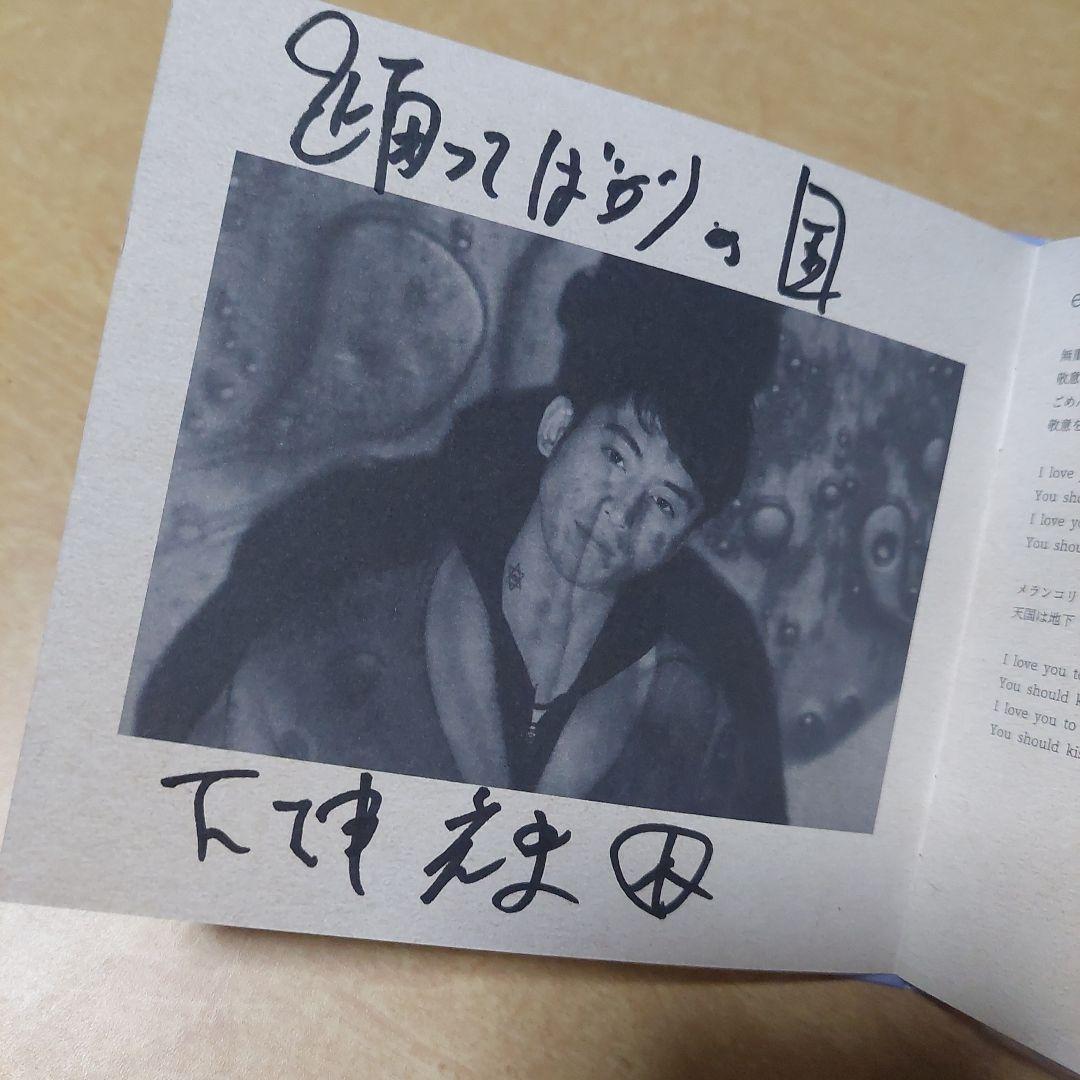 踊ってばかりの国
下津光史
敬意
ごめん
敬意を
I love
You sho
I love yo
You shou
メランコリ
天国は地下
I love you to
You should k
I love you to
You should kis